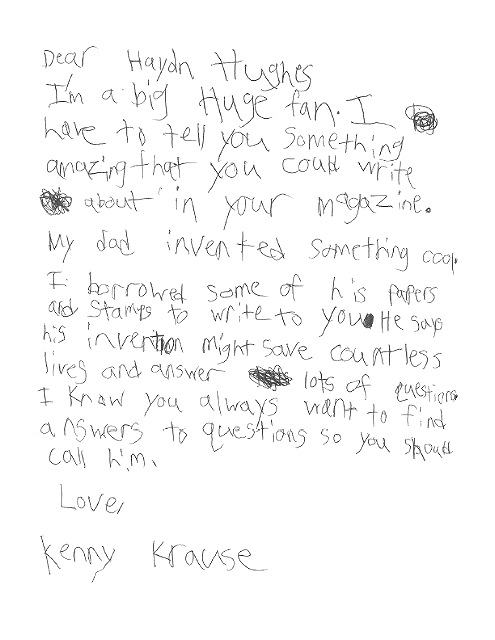 Dear Haydn Hughes
I'm a big Huge fan. I
have to tell you something
amazing that you could write
about in your magazine.
My dad invented something cool.
I borrowed some of his papers
and stamps to write to you He says
his invention might save countless
lives and answer lots of questions.
I know you always want to find
answers to questions so you should
call him.
Love,
Kenny Krause